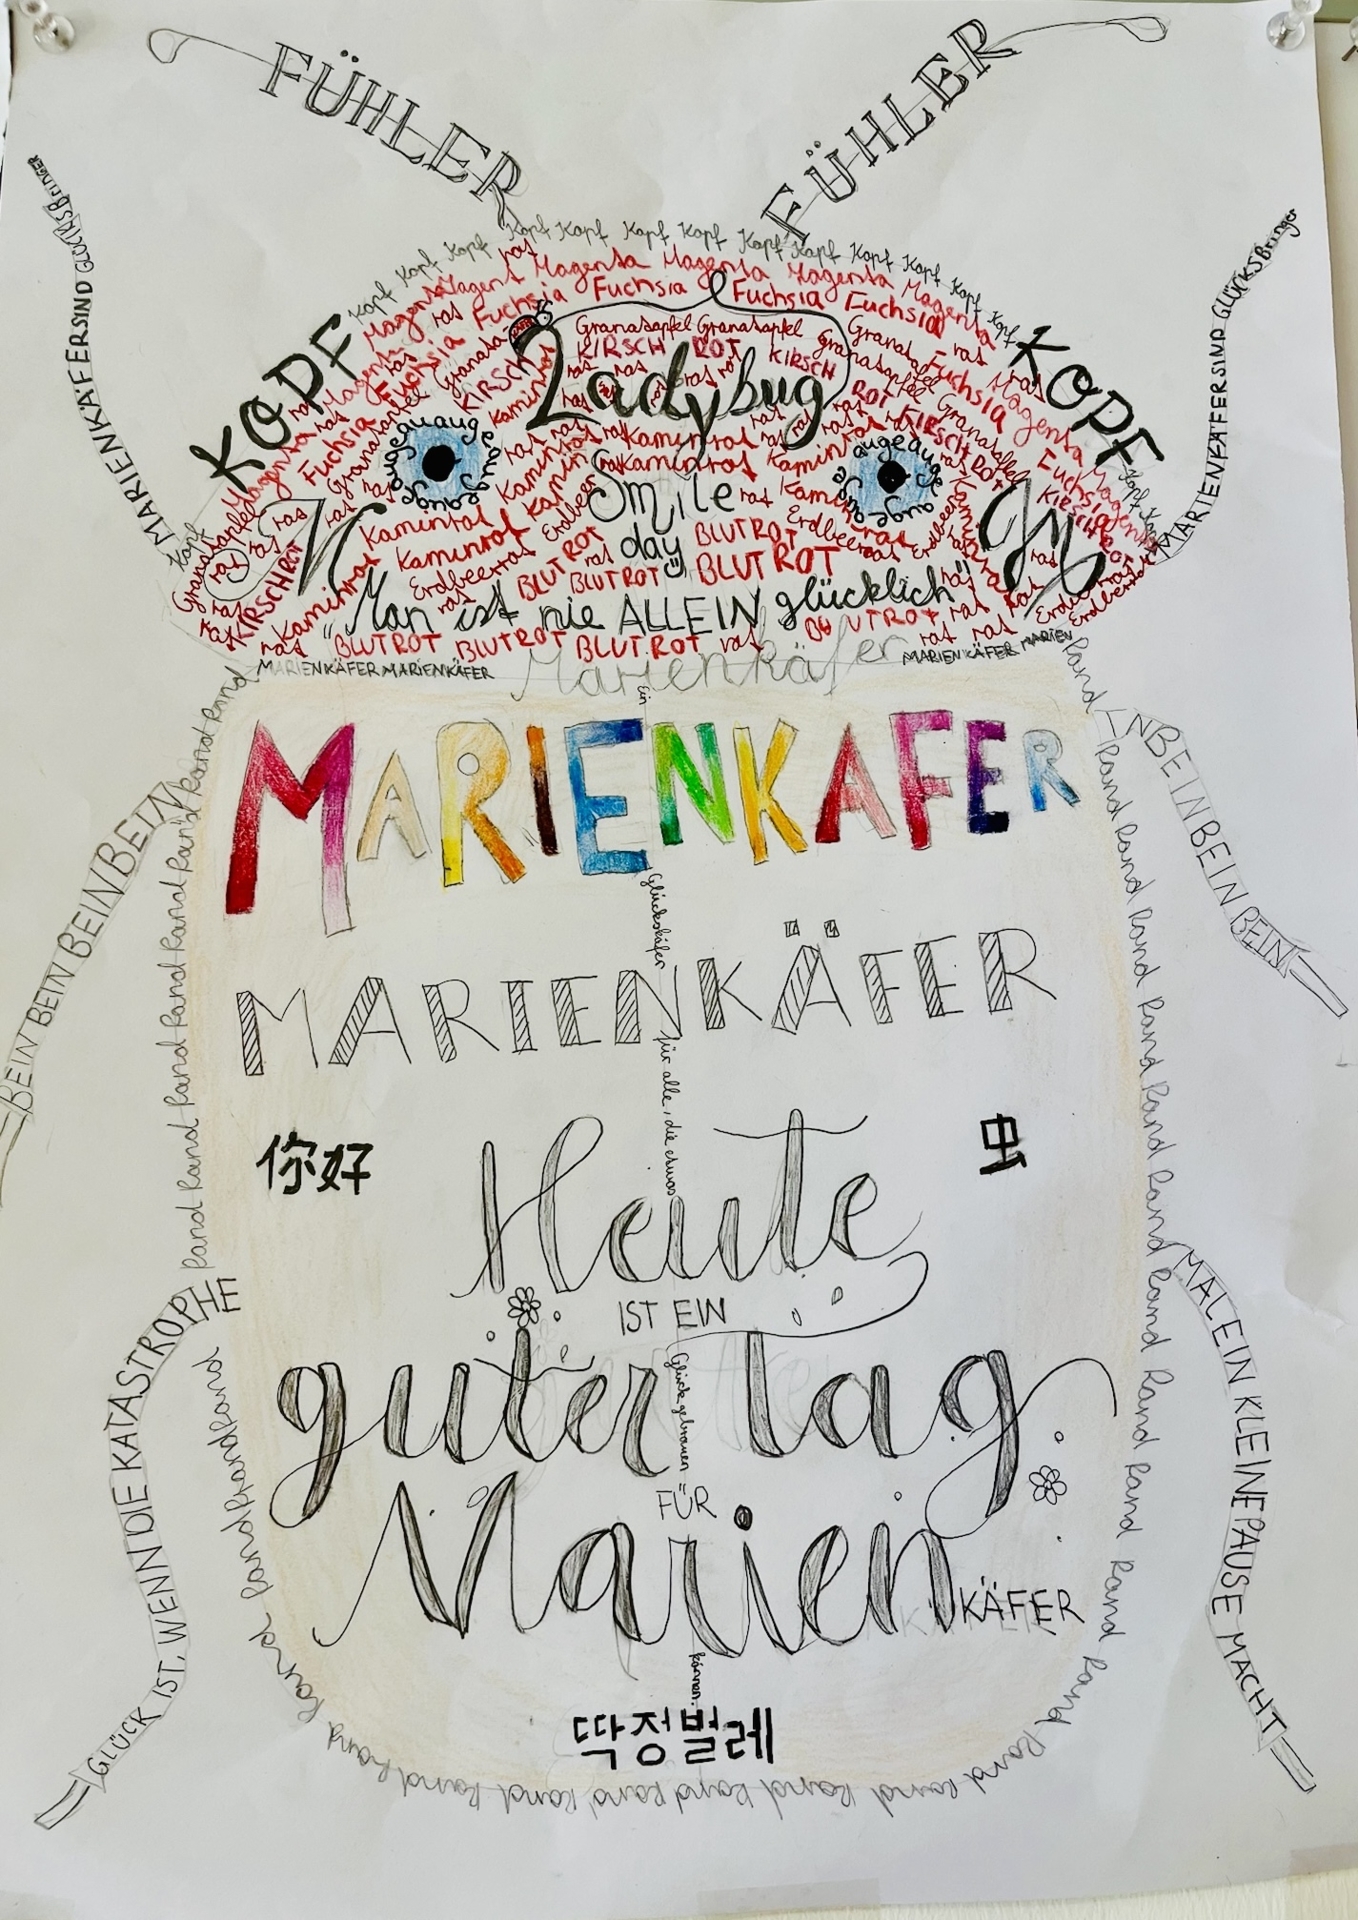 FÜHLER
FÜHLER
MARIENKÄFER SIND GLÜCKSBringer
MARIENKÄFER SIND GLÜCKSBringer
Kopf Kopf Kopf Kopf Kopf Kopf Kopf Kopf Kopf Kopf Kopf Kopf Kopf
KOPF
KOPF
Magenta Magenta Magenta Magenta Magenta
Fuchsia Fuchsia Fuchsia Fuchsia Fuchsia
Granatapfel Granatapfel Granatapfel Granatapfel
KIRSCH ROT KIRSCH ROT KIRSCHROT
Ladybug
augeaugeauge
augeaugeauge
Kaminrot Kaminrot Kaminrot
Kaminrot Kaminrot Kaminrot
Smile
day
Erdbeerrot Erdbeerrot
BLUTROT BLUTROT
BLUTROT BLUTROT BLUTROT
KIRSCHROT
"Man ist nie ALLEIN glücklich"
BLUTROT BLUTROT BLUTROT rot BLUTROT rot rot
MARIENKÄFER MARIENKÄFER Marienkäfer MARIENKÄFER MARIEN
Ein
MARIENKAFER
Glückskäfer
MARIENKÄFER
für alle, die etwas
你好
虫
Heute
IST EIN
guter tag
Glück gebrauchen
FÜR
Marien KÄFER
können.
딱정벌레
BEIN BEIN BEIN BEIN BEIN
NBEIN BEIN BEIN BEIN
GLÜCK IST, WENN DIE KATASTROPHE
MAL EIN KLEINE PAUSE MACHT
Rand Rand Rand Rand Rand Rand Rand Rand Rand Rand
Rand Rand Rand Rand Rand Rand Rand Rand Rand Rand